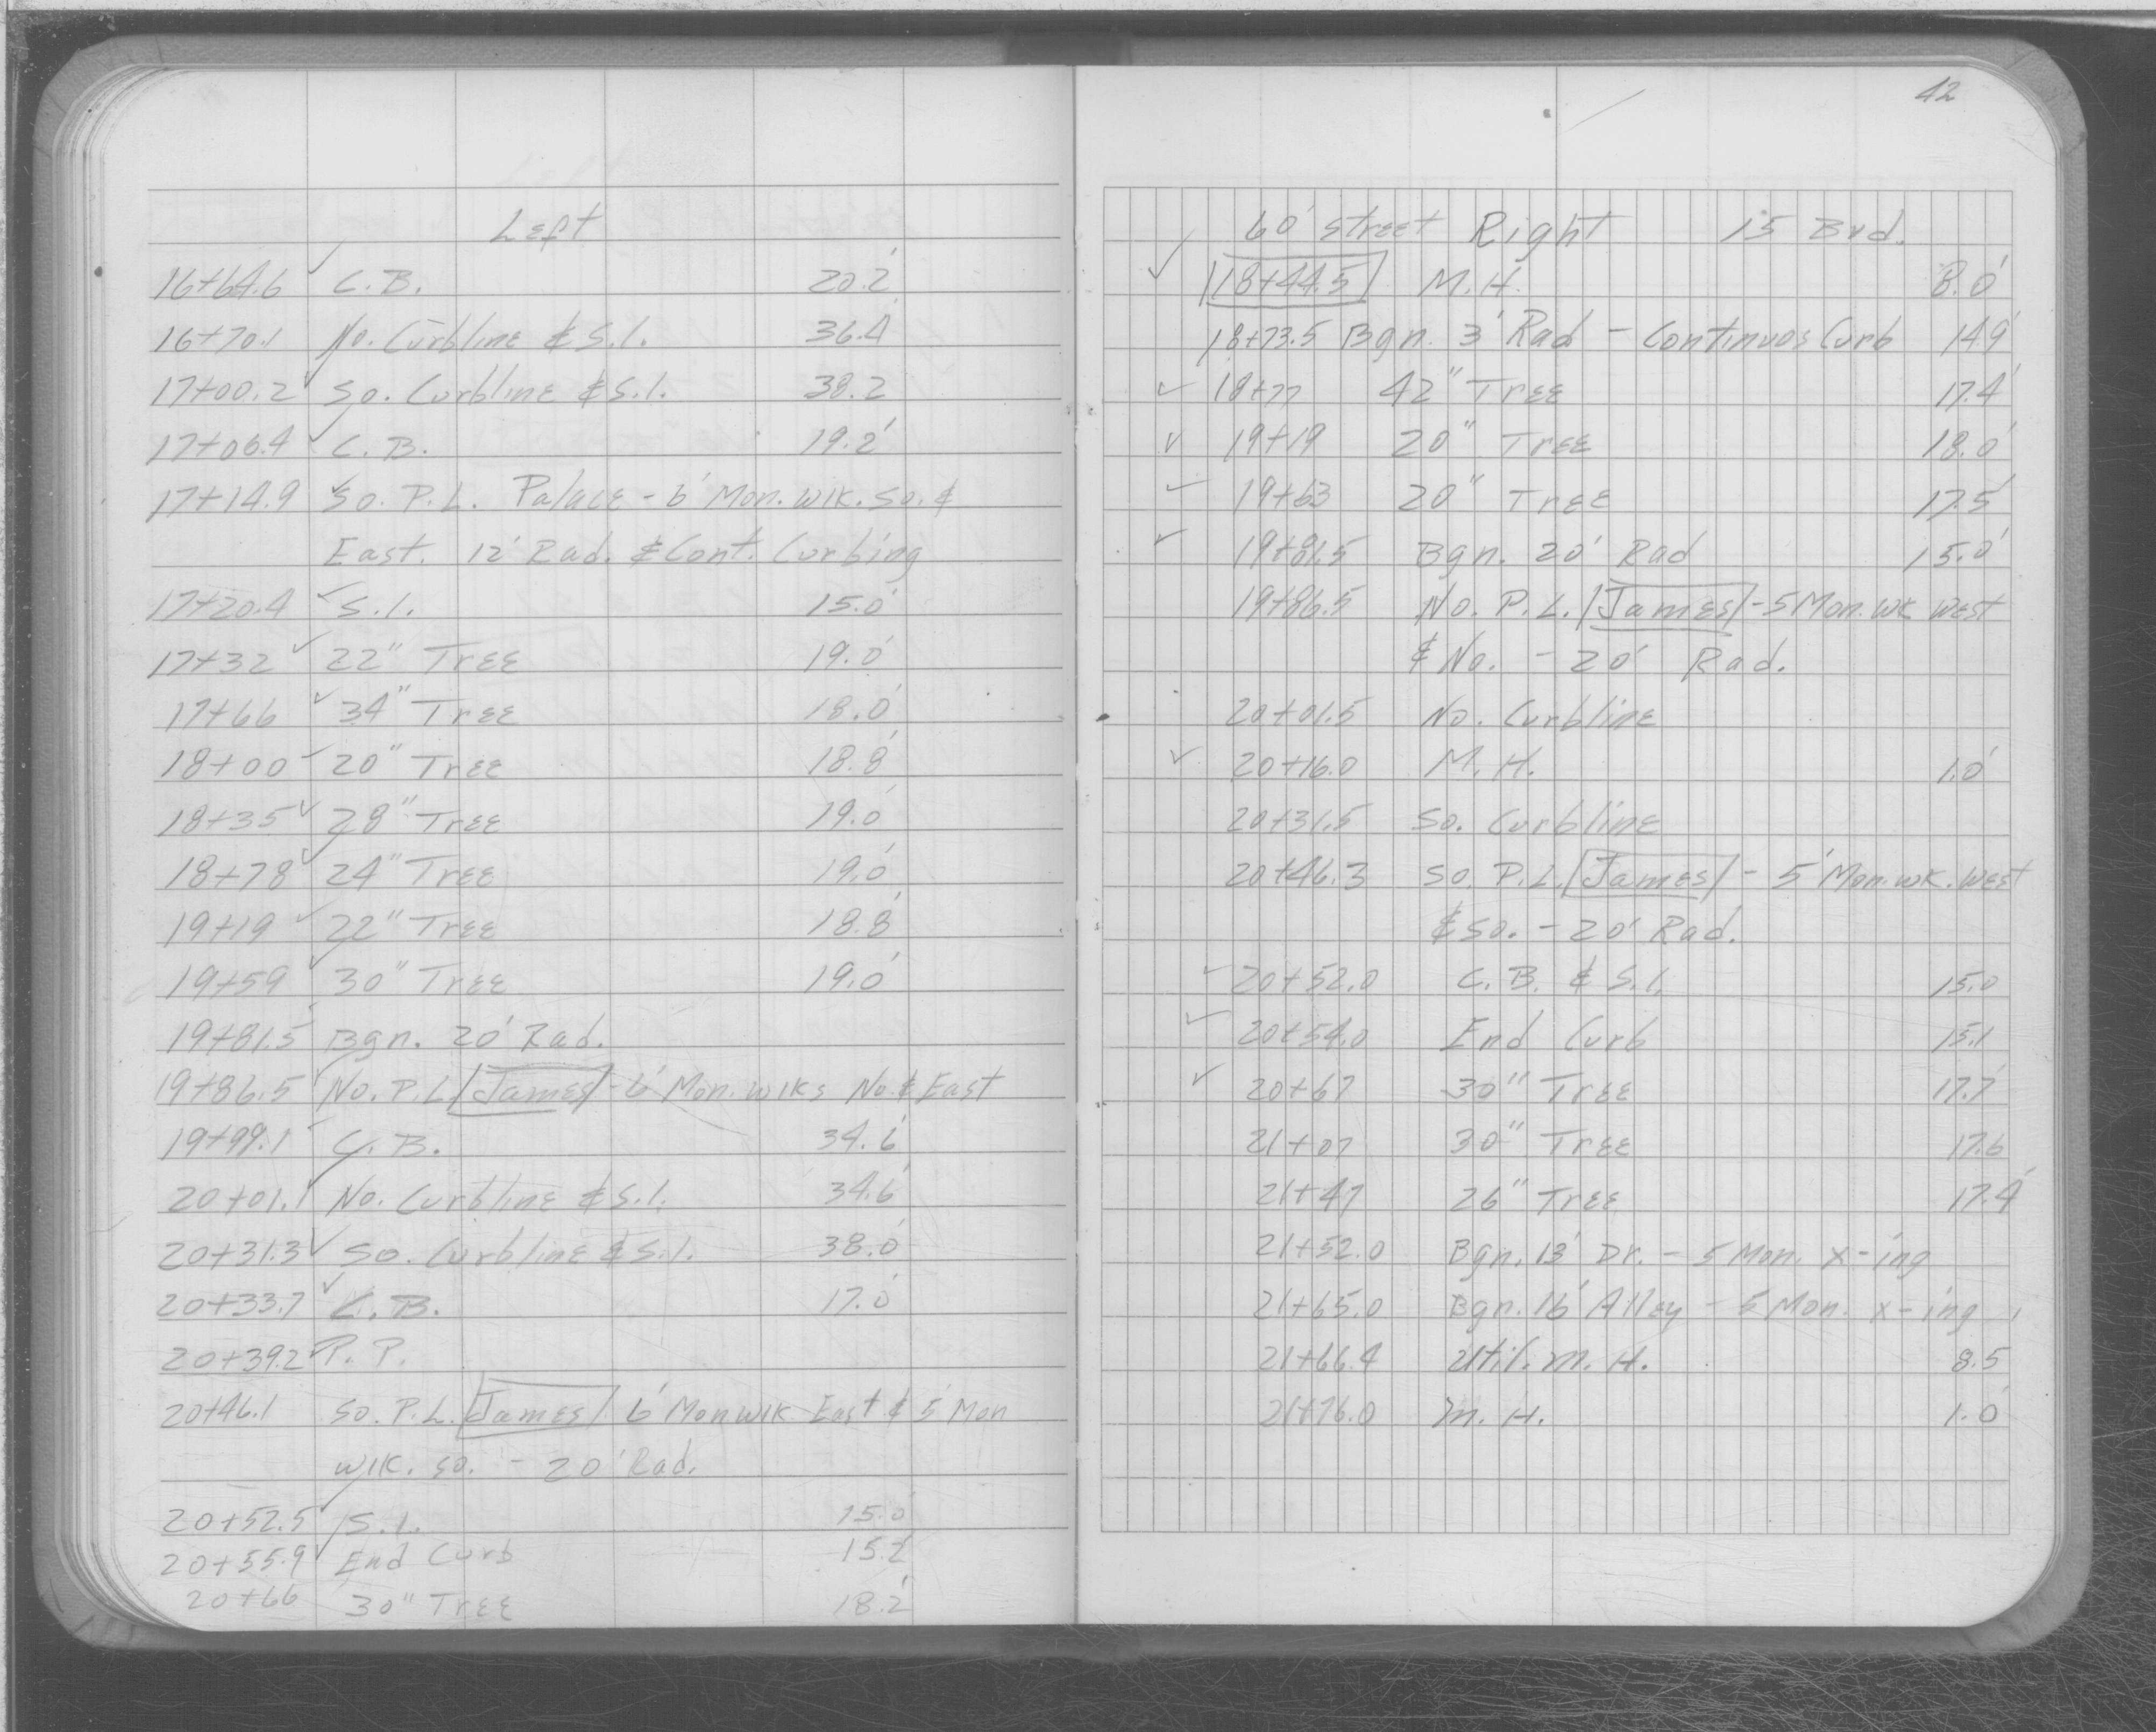 Left
16+64.6 C.B. 20.2'
16+70.1 No. Curbline & S.I. 36.4'
17+00.2 So. Curbline & S.I. 38.2
17+06.4 C.B. 19.2'
17+14.9 So. P.L. Palace - 6' Mon. wlk. So. &
East. 12' Rad. & Cont. Curbing
17+20.4 S.I. 15.0'
17+32 22" Tree 19.0'
17+66 34" Tree 18.0'
18+00 20" Tree 18.8'
18+35 28" Tree 19.0'
18+78 24" Tree 19.0'
19+19 22" Tree 18.8'
19+59 30" Tree 19.0'
19+81.5 Bgn. 20' Rad.
19+86.5 No. P.L. James - 6' Mon. wlks No. & East
19+99.1 C.B. 34.6'
20+01.1 No. Curbline & S.I. 34.6'
20+31.3 So. Curbline & S.I. 38.0'
20+33.7 C.B. 17.0'
20+39.2 P.P.
20+46.1 So. P.L. James 6' Mon wlk East & 5' Mon
wlk. so. - 20' Rad.
20+52.5 S.I. 15.0'
20+55.9 End Curb 15.2'
20+66 30" Tree 18.2'
42
60' street Right 15 Bvd.
18+44.5 M.H. 8.0'
18+73.5 Bgn. 3' Rad - Continuos Curb 14.9'
18+77 42" Tree 17.4'
19+19 20" Tree 18.0'
19+63 20" Tree 17.5'
19+81.5 Bgn. 20' Rad 15.0'
19+86.5 No. P.L. James - 5 Mon. wk West
& No. - 20' Rad.
20+01.5 No. Curbline
20+16.0 M.H. 1.0'
20+31.5 So. Curbline
20+46.3 So. P.L. James - 5' Mon. wk. West
& So. - 20' Rad.
20+52.0 C.B. & S.I. 15.0
20+54.0 End Curb 15.1
20+67 30" Tree 17.7'
21+07 30" Tree 17.6
21+47 26" Tree 17.4'
21+52.0 Bgn. 13' Dr. - 5 Mon. x-ing
21+65.0 Bgn. 16' Alley - 5 Mon. x-ing
21+66.4 Util. M.H. 8.5
21+76.0 M.H. 1.0'